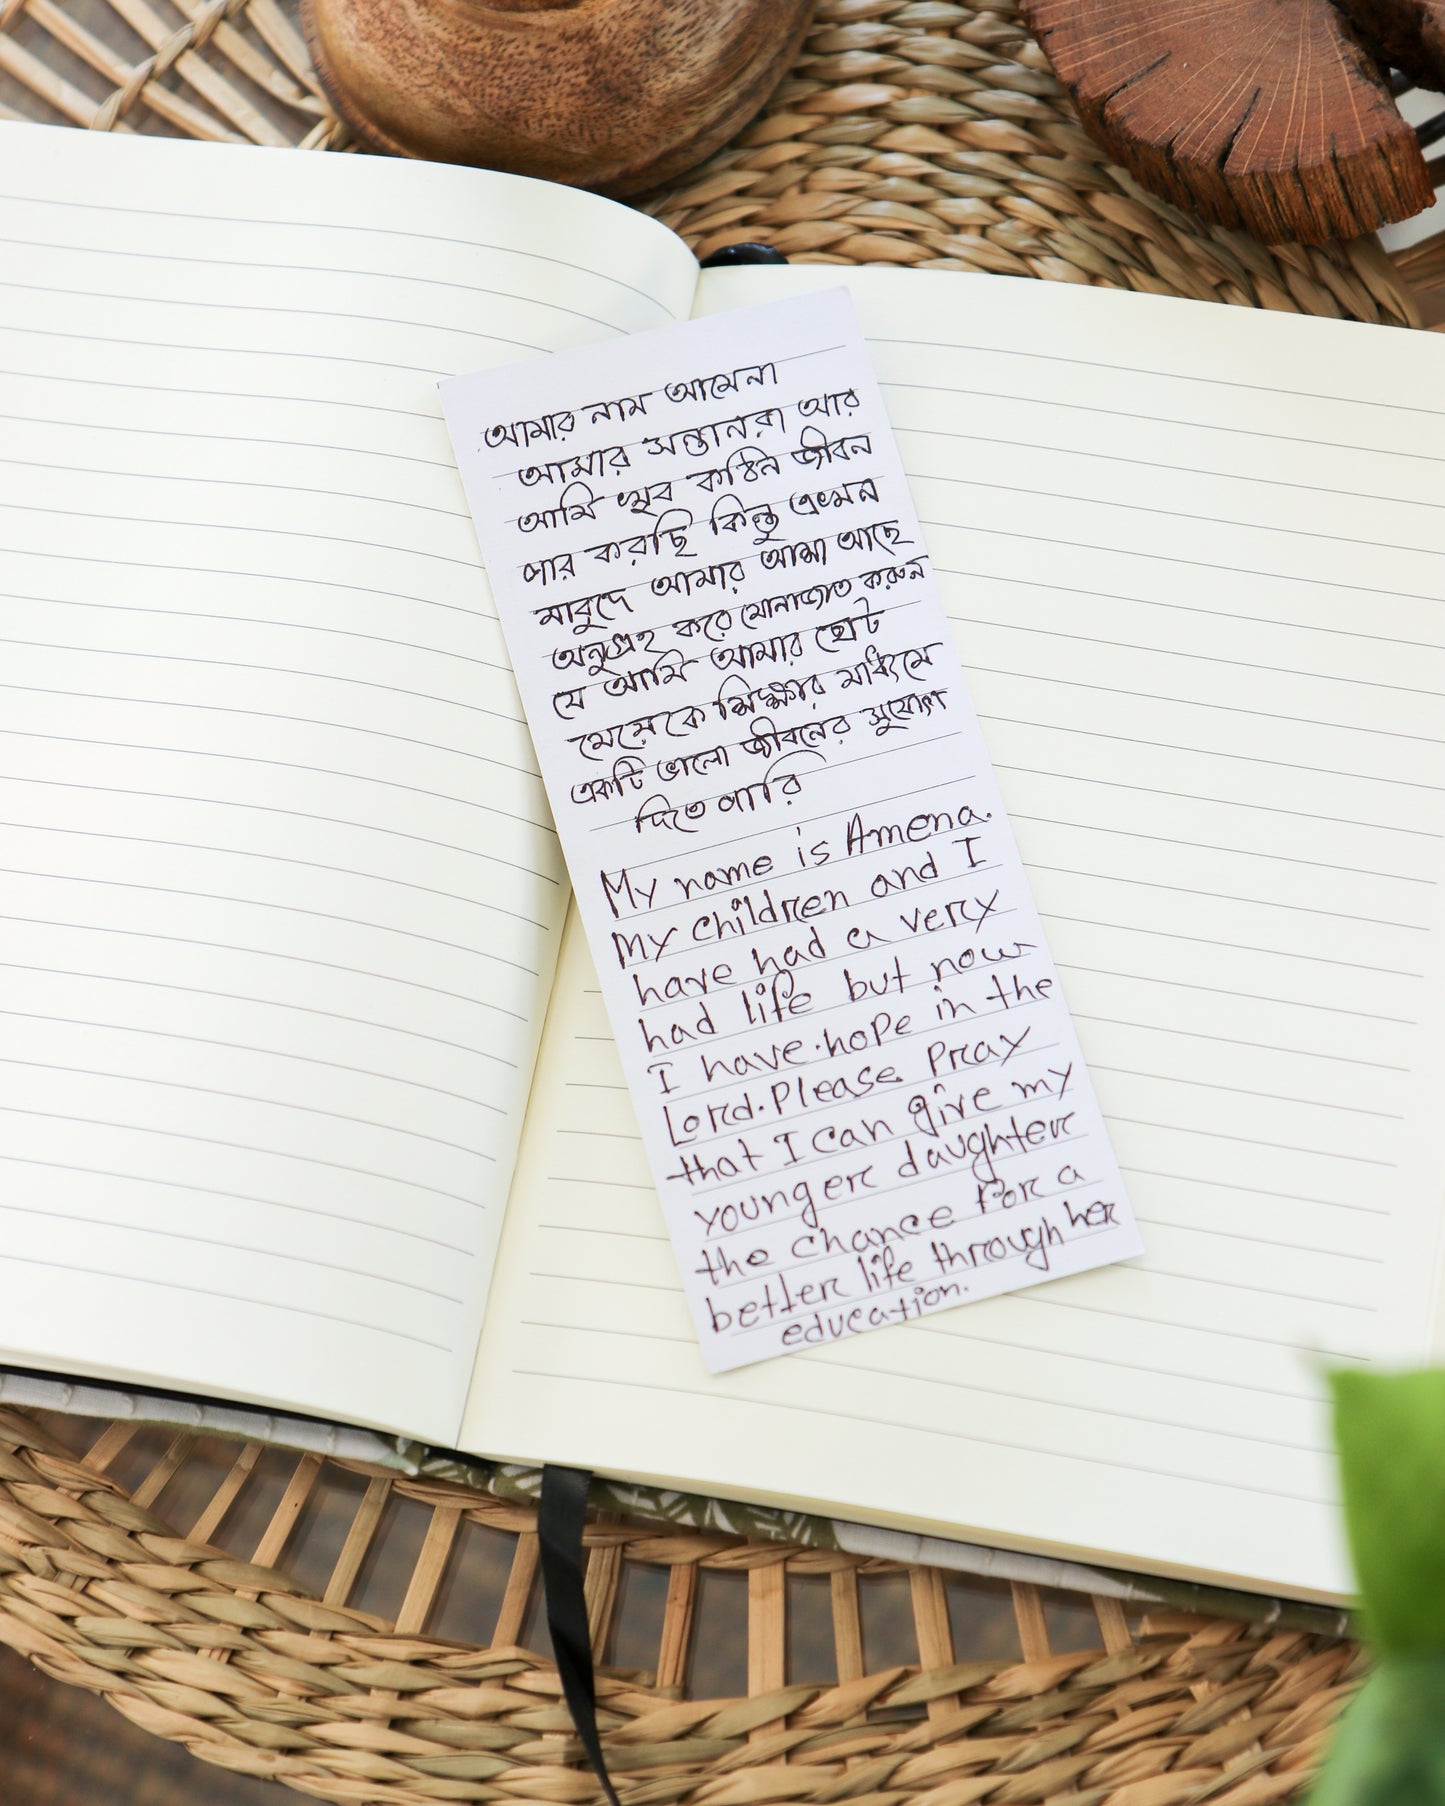 আমার নাম আমেনা
আমার সন্তানরা আর
আমি খুব কঠিন জীবন
পার করছি কিন্তু এখন
মাবুদে আমার আশা আছে
অনুগ্রহ করে মোনাজাত করুন
যে আমি আমার ছোট
মেয়েকে শিক্ষার মাধ্যমে
একটি ভালো জীবনের সুযোগ
দিতে পারি
My name is Amena.
My children and I
have had a very
had life but now
I have hope in the
Lord. Please Pray
that I can give my
younger daughter
the chance for a
better life through her
education.